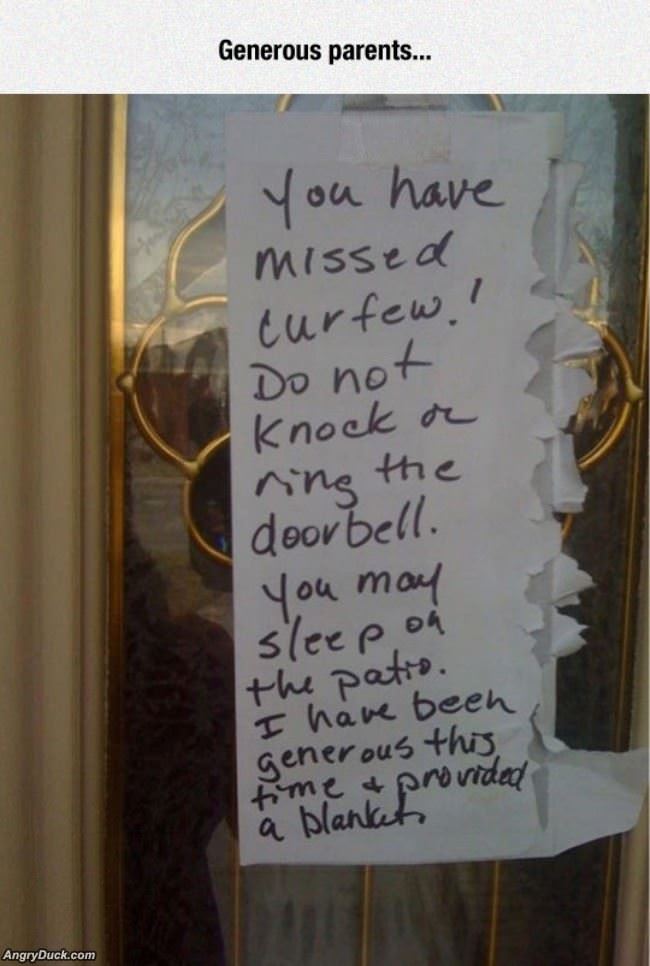 Generous parents...
You have
missed
curfew!
Do not
knock or
ring the
doorbell.
You may
sleep on
the patio.
I have been
generous this
time & provided
a blanket
AngryDuck.com